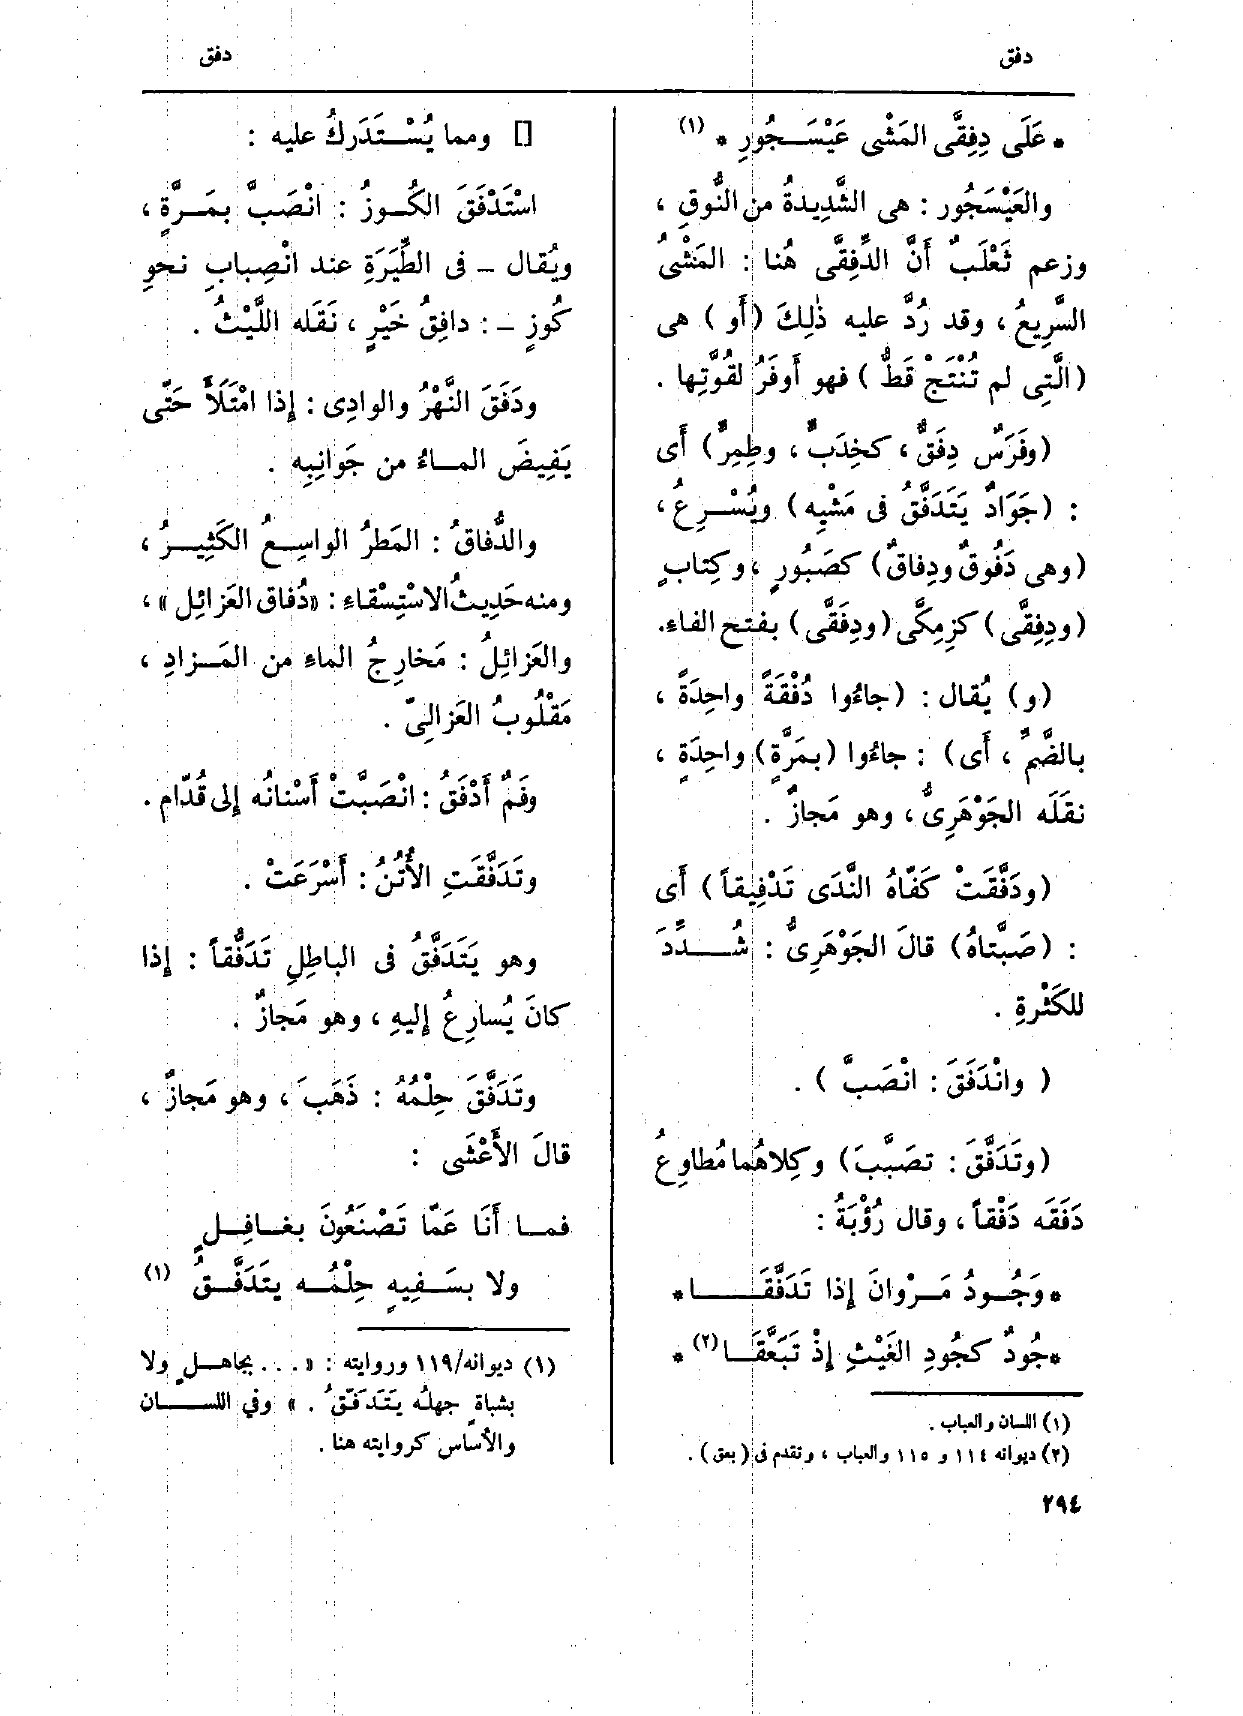 دفق
دفق
* عَلَى دِفِقَّى المَشْى عَيْسَـجُورِ * (١)
والعَيْسَجُور : هى الشَّدِيدةُ من النُّوقِ ،
وزعم ثَعْلَبٌ أَنَّ الدِّفِقَّى هُنا : المَشْىُ
السَّرِيعُ ، وقد رُدَّ عليه ذٰلِكَ (أَو ) هى
(الَّتِى لم تُنْتَجْ قَطُّ ) فهو أَوفَرُ لقُوَّتِها .
(وفَرَسٌ دِفَقٌّ ، كخِدَبٍّ ، وطِمِرٍّ) أَى
: (جَوَادٌ يَتَدَفَّقُ فى مَشْيِه ) ويُسْـرِعُ ،
(وهى دَفُوقٌ ودِفاقٌ) كصَبُورٍ ، وكِتابٍ
(ودِفِقَّى) كزِمِكَّى (ودِفَقَّى) بفتح الفاء.
(و) يُقال : (جاءُوا دُفْقَةً واحِدَةً ،
بالضَّمِّ ، أَى) : جاءُوا (بمَرَّةٍ) واحِدَةٍ ،
نقَلَه الجَوْهَرِىُّ ، وهو مَجازٌ .
(ودَفَّقَتْ كَفَّاهُ النَّدَى تَدْفِيقاً) أَى
: (صَبَّتاهُ) قالَ الجَوْهَرِىُّ : شُـدِّدَ
للكَثْرةِ .
( وانْدَفَقَ : انْصَبَّ ) .
(وتَدَفَّقَ : تصَبَّبَ) وكِلاهُما مُطاوِعُ
دَفَقَه دَفْقاً ، وقال رُؤْبَةُ :
* وَجُـودُ مَـرْوانَ إِذا تَدَفَّقَـا *
* جُودٌ كجُودِ الغَيْثِ إِذْ تَبَعَّقَـا (٢) *
(١) اللسان والعباب .
(٢) ديوانه ١١٤ و ١١٥ والعباب ، وتقدم فى ( بعق ) .
٢٩٤
[] ومما يُسْـتَدَركُ عليه :
اسْتَدْفَقَ الكُـوزُ : انْصَبَّ بمَـرَّةٍ ،
ويُقال – فى الطِّيَرَةِ عند انْصِبابِ نحوِ
كُوزٍ – : دافِقُ خَيْرٍ ، نَقَله اللَّيْثُ .
ودَفَقَ النَّهْرُ والوادِى : إِذا امْتَلَأَ حَتَّى
يَفِيضَ المـاءُ من جَوَانِبِه .
والدُّفاقُ : المَطرُ الواسِـعُ الكَثِيـرُ ،
ومنه حَدِيثُ الاسْتِسْقاء : «دُفاق العَزائِل » ،
والعَزائِلُ : مَخارِجُ الماء من المَـزادِ ،
مَقْلُوبُ العَزالِىّ .
وفَمٌ أَدْفَقُ : انْصَبَّتْ أَسْنانُه إِلى قُدّام .
وتَدَفَّقَتِ الأُتُنُ : أَسْرَعَتْ .
وهو يَتَدَفَّقُ فى الباطِلِ تَدَفُّقاً : إِذا
كانَ يُسارِعُ إِليهِ ، وهو مَجازٌ .
وتَدَفَّقَ حِلْمُهُ : ذَهَبَ ، وهو مَجازٌ ،
قالَ الأَعْشَى :
فمـا أَنَا عَمّا تَصْنَعُونَ بغـافِـلٍ
ولا بسَـفِيهٍ حِلْمُـه يتَدَفَّـقُ (١)
(١) ديوانه/١١٩ وروايته : «... بجاهـلٍ ولا
بشباةٍ جهلُه يَتَدَفّقُ . » وفي اللسـان
والأساس كروايته هنا .